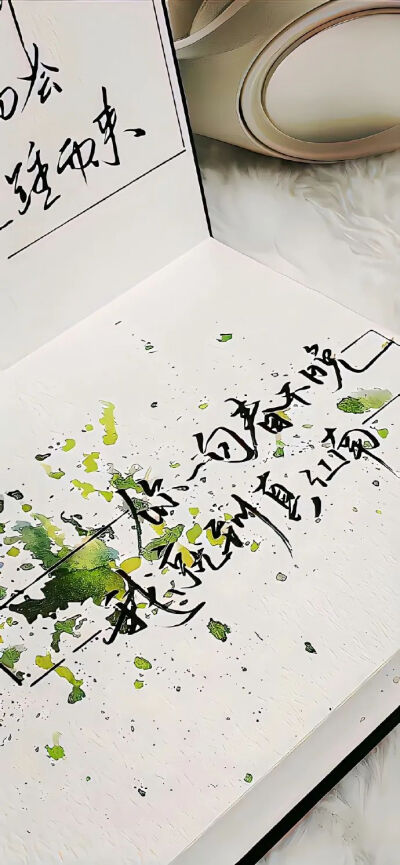 会
踵而来
你一句春不晚
我就到真江南